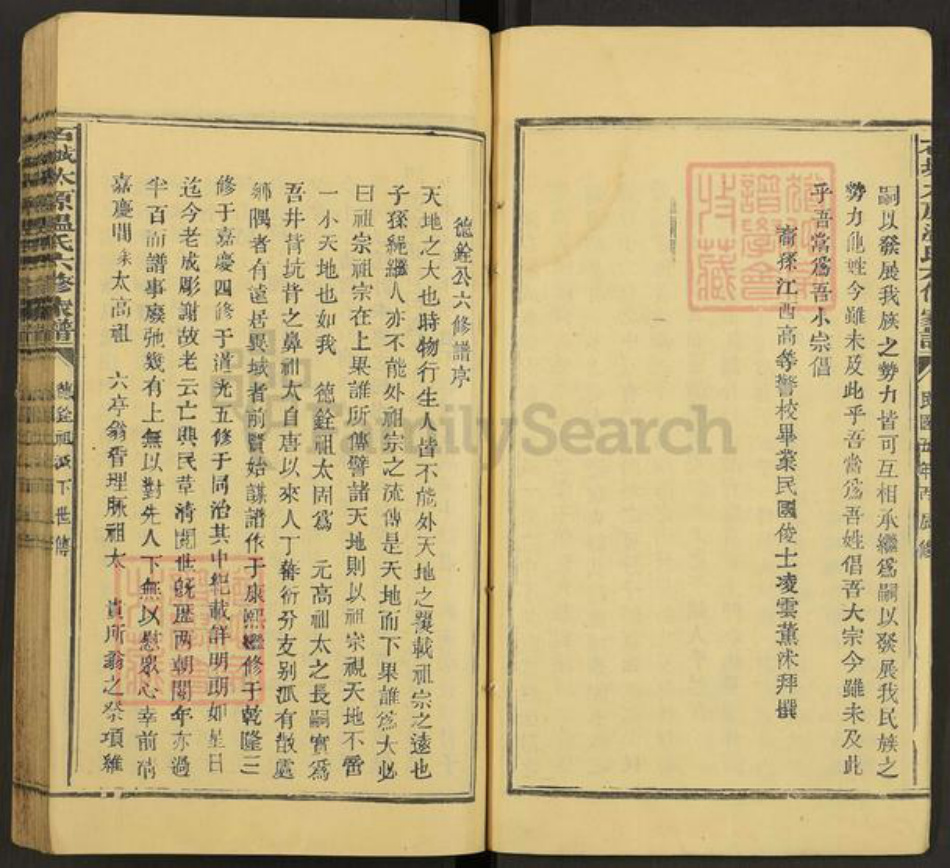 嗣以發展我族之勢力皆可互相承繼爲嗣以發展我民族之
勢力他姓今雖未及此乎吾當爲吾姓倡吾大宗今雖未及此
乎吾當爲吾小宗倡
裔孫江西高等警校畢業民國俊士凌雲薰沐拜撰
德銓公六修譜序
天地之大也時物行生人皆不能外天地之覆載祖宗之遠也
子孫繩繼人亦不能外祖宗之流傳是天地而下果誰爲大必
曰祖宗祖宗在上果誰所傳譬諸天地則以祖宗視天地不啻
一小天地也如我 德銓祖太固爲 元高祖太之長嗣實爲
吾井背坑背之鼻祖太自唐以來人丁蕃衍分支别派有散處
鄉隅者有遠居異域者前賢始謀譜作于康熙繼修于乾隆三
修于嘉慶四修于道光五修于同治其中紀載詳明朗如星日
迄今老成彫謝故老云亡興民革清閱世旣歷兩朝閱年亦過
半百而譜事廢弛幾有上無以對先人下無以慰眾心幸前清
嘉慶間 太高祖 六亭翁晋理脉祖太 貴所翁之祭項雖
石城太原溫氏六修家譜
德銓祖派下世傳
FamilySearch